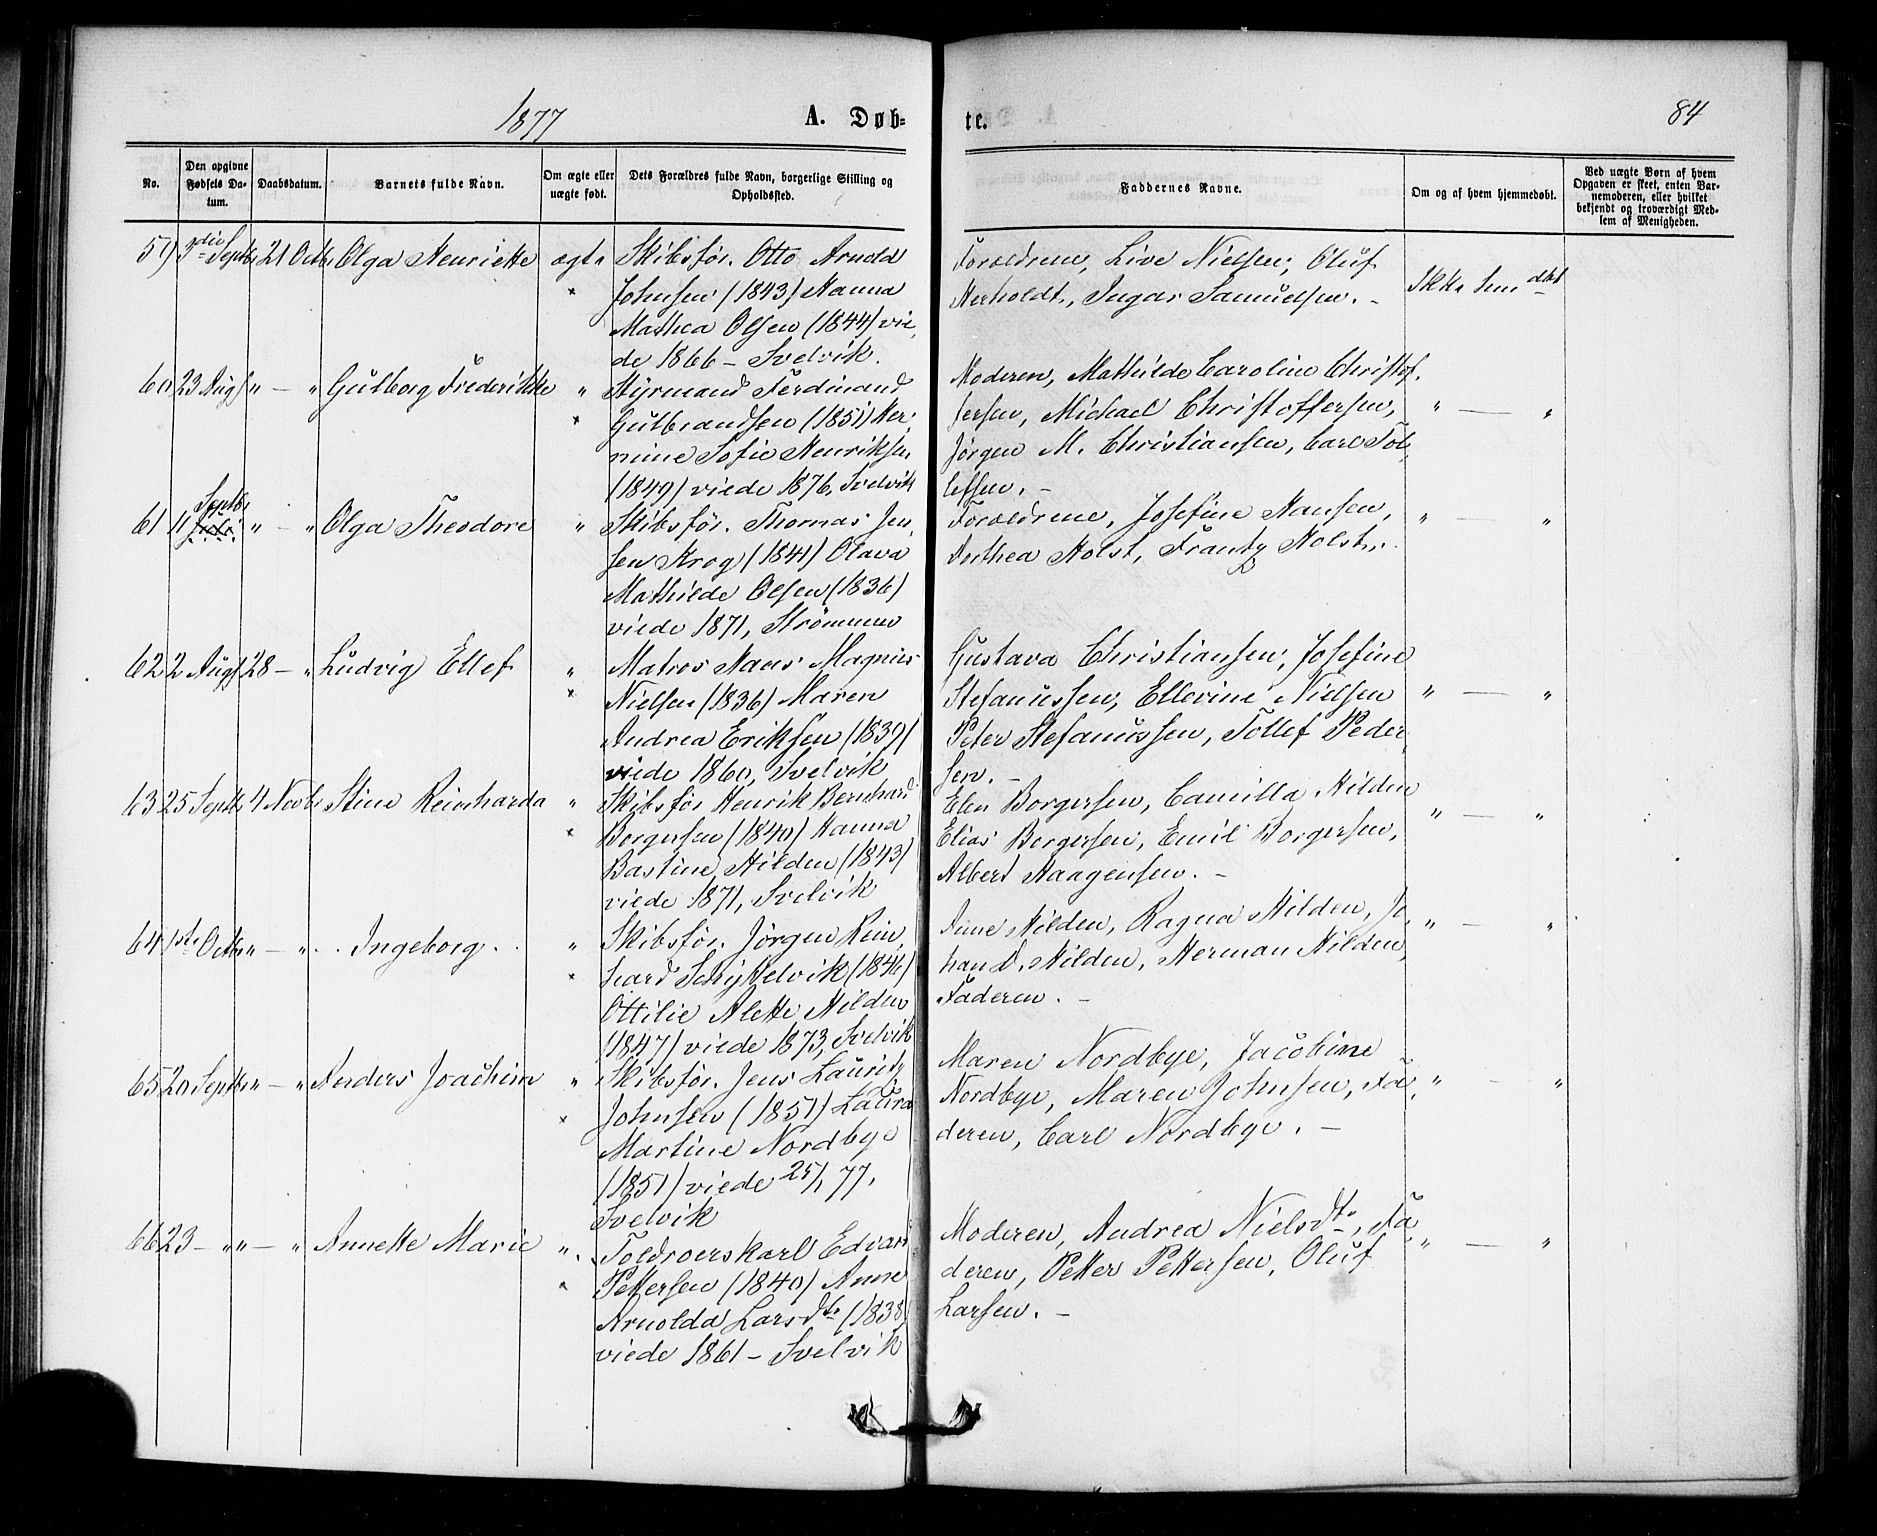 1877
A. Døb-
te.
84
No.
Den opgivne Fødsels Da-tum.
Daabsdatum.
Barnets fulde Navn.
Om ægte eller uægte født.
Dets Forældres fulde Navn, borgerlige Stilling og Opholdssted.
Faddernes Navne.
Om og af hvem hjemmedøbt.
Ved uægte Børn af hvem Opgaven er skeet, enten Bar-nemoderen, eller hvilket bekjendt og troværdigt Med-lem af Menigheden.
59 9de Septb. 21 Octb. Olga Henriette ægte Skibsfør. Otto Arnold
Johnsen (1843) Hanna
Mathea Olsen (1844) vie,
de 1866 - Svelvik.
Forældrene, Live Nielsen, Oluf
Herholdt, Ingar Samuelsen. -
Ikke hmdbt
60 23 Augst " — " Gulborg Frederikke " Styrmand Ferdinand
Gulbrandsen (1851) Her,
mine Sofie Henriksen
(1849) viede 1876, Svelvik
Moderen, Mathilde Caroline Christof,
fersen, Michael Christoffersen,
Jørgen M. Christiansen, Carl Tol,
lefsen. -
" — "
61 11 Septb. " — " Olga Theodore " Skibsfør. Thomas Jen,
sen Krog (1841) Olava
Mathilde Olsen (1836)
viede 1871, Strømmen
Forældrene, Josefine Hansen,
Anthea Holst, Frantz Holst.
" — "
62 2 Augst 28 — " Ludvig Ellef " Matros Hans Magnus
Nielsen (1836) Maren
Andrea Eriksen (1839)
viede 1860, Svelvik
Gustava Christiansen, Josefine
Stefanussen, Ellevine Nielsen
Peter Stefanussen, Tollef Peder,
sen. -
" — "
63 25 Septb. 4 Novb. Stine Reinharda " Skibsfør Henrik Bernhard
Borgersen (1840) Hanna
Bastine Hilden (1843)
viede 1871, Svelvik
Elen Borgersen, Camilla Hilden
Elias Borgersen, Emil Borgersen,
Albert Haagensen. -
" — "
64 1ste Octb. " — " Ingeborg. " Skibsfør. Jørgen Rein,
hard Schjttelvik (1846)
Ottilie Alette Hilden
(1847) viede 1873, Svelvik
Anne Hilden, Ragna Hilden, Jo,
han D. Hilden, Herman Hilden,
Faderen. -
" — "
65 20 Septb. " — " Anders Joachim " Skibsfør. Jens Lauritz
Johnsen (1851) Laura
Martine Nordbye
(1851) viede 25/1 77,
Svelvik
Maren Nordbye, Jacobine
Nordbye, Maren Johnsen, Fa,
deren, Carl Nordbye. -
" - "
66 23 — " " — " Annette Marie " Toldroerskarl Edvard
Pettersen (1840) Anne
Arnolda Larsdtr. (1838)
viede 1861 - Svelvik
Moderen, Andrea Nielsdtr., Fa
deren, Petter Pettersen, Oluf
Larsen. -
" — "